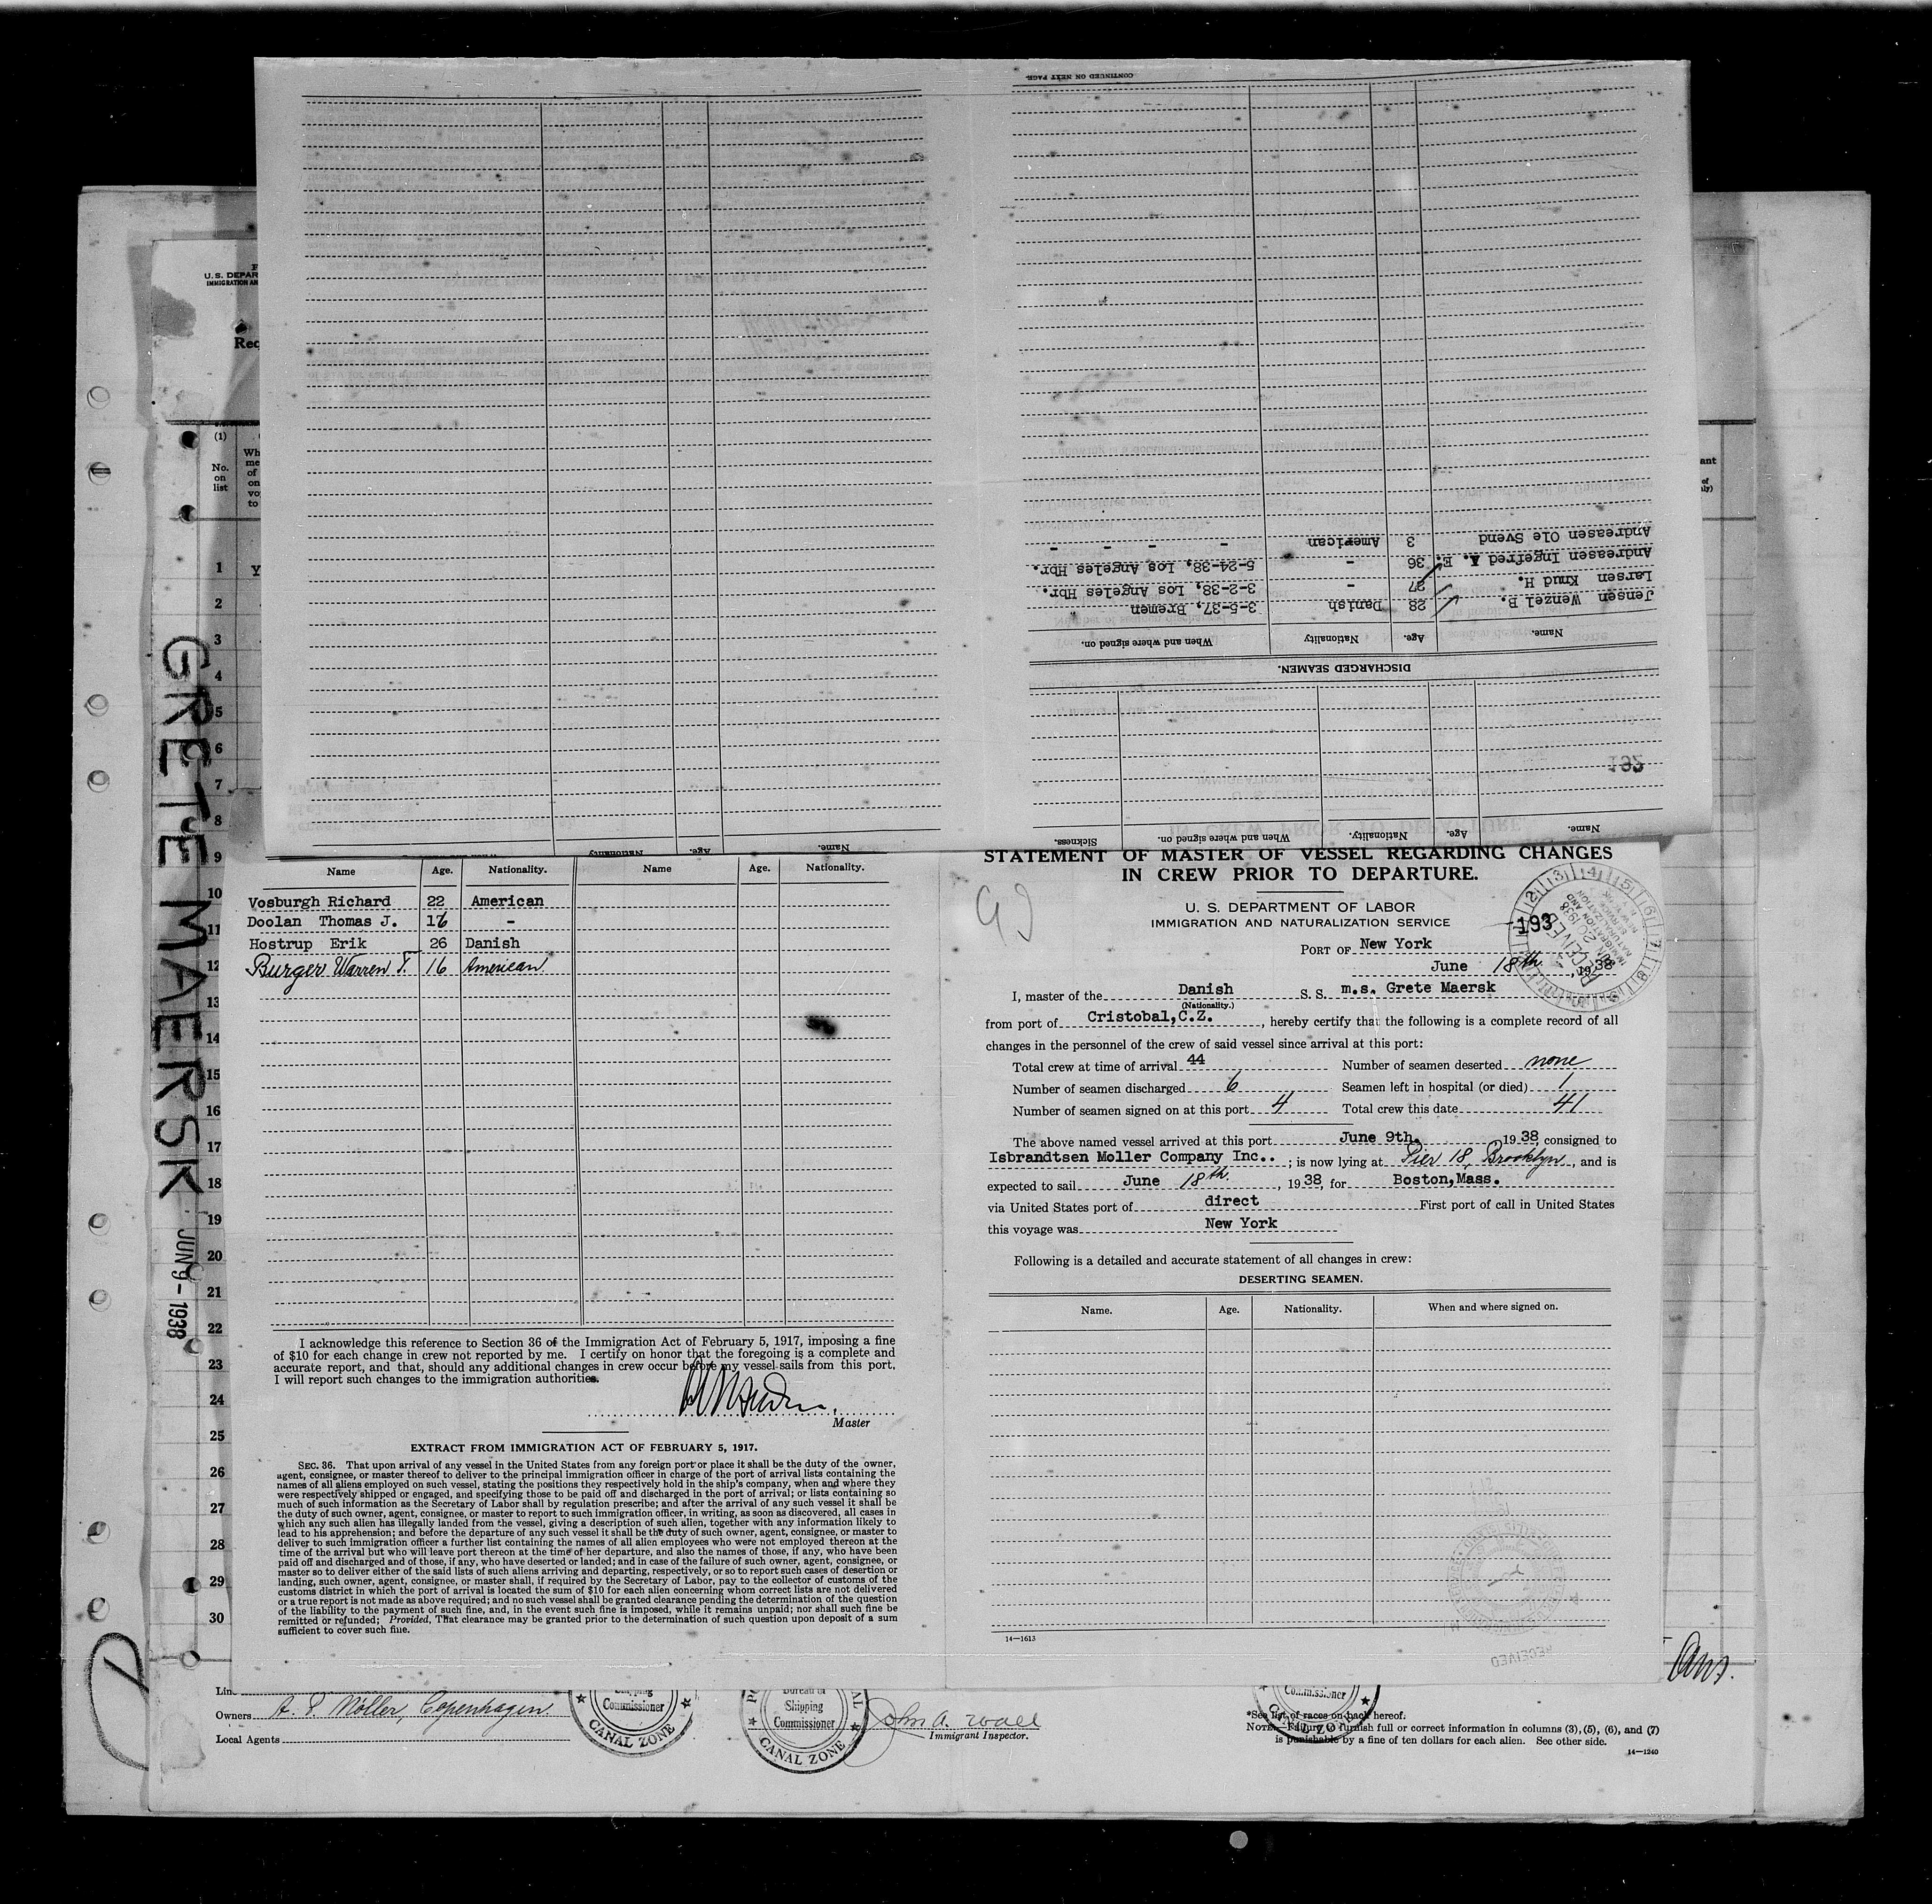 CONTINUED ON NEXT PAGE.
Andreasen Ole Svend 3 American - - - -
Andreasen Ingefred A. E. 36 - 5-24-38, Los Angeles Hbr.
Larsen Knud H. 27 - 3-2-38, Los Angeles Hbr.
Jensen Wenzel B. 28 Danish 3-5-37, Bremen
Name. Age. Nationality When and where signed on.
DISCHARGED SEAMEN.
192
Name. Age. Nationality. When and where signed on. Sickness.
Name. Age. Nationality
U. S. DEPAR
IMMIGRATION AN
Req
(1)
No.
on
list
Wh
me
of
on
vo
to
1
2
3
4
5
6
7
8
9
10
11
12
13
14
15
16
17
18
19
20
21
22
23
24
25
26
27
28
29
30
GRETE MAERSK JUN 9 - 1938
Name Age. Nationality. Name Age. Nationality.
Vosburgh Richard 22 American
Doolan Thomas J. 16 -
Hostrup Erik 26 Danish
Burger Warren T. 16 American
I acknowledge this reference to Section 36 of the Immigration Act of February 5, 1917, imposing a fine
of $10 for each change in crew not reported by me. I certify on honor that the foregoing is a complete and
accurate report, and that, should any additional changes in crew occur before my vessel sails from this port,
I will report such changes to the immigration authorities.
Master
EXTRACT FROM IMMIGRATION ACT OF FEBRUARY 5, 1917.
SEC. 36. That upon arrival of any vessel in the United States from any foreign port or place it shall be the duty of the owner,
agent, consignee, or master thereof to deliver to the principal immigration officer in charge of the port of arrival lists containing the
names of all aliens employed on such vessel, stating the positions they respectively hold in the ship's company, when and where they
were respectively shipped or engaged, and specifying those to be paid off and discharged in the port of arrival; or lists containing so
much of such information as the Secretary of Labor shall by regulation prescribe; and after the arrival of any such vessel it shall be
the duty of such owner, agent, consignee, or master to report to such immigration officer, in writing, as soon as discovered, all cases in
which any such alien has illegally landed from the vessel, giving a description of such alien, together with any information likely to
lead to his apprehension; and before the departure of any such vessel it shall be the duty of such owner, agent, consignee, or master to
deliver to such immigration officer a further list containing the names of all alien employees who were not employed thereon at the
time of the arrival but who will leave port thereon at the time of her departure, and also the names of those, if any, who have been
paid off and discharged and of those, if any, who have deserted or landed; and in case of the failure of such owner, agent, consignee, or
master so to deliver either of the said lists of such aliens arriving and departing, respectively, or so to report such cases of desertion or
landing, such owner, agent, consignee, or master shall, if required by the Secretary of Labor, pay to the collector of customs of the
customs district in which the port of arrival is located the sum of $10 for each alien concerning whom correct lists are not delivered
or a true report is not made as above required; and no such vessel shall be granted clearance pending the determination of the question
of the liability to the payment of such fine, and, in the event such fine is imposed, while it remains unpaid; nor shall such fine be
remitted or refunded; Provided, That clearance may be granted prior to the determination of such question upon deposit of a sum
sufficient to cover such fine.
STATEMENT OF MASTER OF VESSEL REGARDING CHANGES
IN CREW PRIOR TO DEPARTURE.
U. S. DEPARTMENT OF LABOR
IMMIGRATION AND NATURALIZATION SERVICE
193
PORT OF New York
June 18th, 1938
I, master of the Danish S. S. m.s. Grete Maersk
(Nationality.)
from port of Cristobal,C.Z., hereby certify that the following is a complete record of all
changes in the personnel of the crew of said vessel since arrival at this port:
Total crew at time of arrival 44 Number of seamen deserted none
Number of seamen discharged 6 Seamen left in hospital (or died) 1
Number of seamen signed on at this port 4 Total crew this date 41
The above named vessel arrived at this port June 9th. 1938, consigned to
Isbrandtsen Moller Company Inc..; is now lying at Pier 18, Brooklyn, and is
expected to sail June 18th, 1938, for Boston,Mass.
via United States port of direct First port of call in United States
this voyage was New York
Following is a detailed and accurate statement of all changes in crew:
DESERTING SEAMEN.
Name. Age. Nationality. When and where signed on.
14—1613
RECEIVED
Line
Owners A. P. Möller, Copenhagen
Local Agents
Shipping
Commissioner
CANAL ZONE
Bureau of
Shipping
Commissioner
CANAL ZONE
John A. Wall
Immigrant Inspector.
Commissioner
CANAL ZONE
*See list of races on back hereof.
NOTE.—Failure to furnish full or correct information in columns (3), (5), (6), and (7)
is punishable by a fine of ten dollars for each alien. See other side.
14—1240